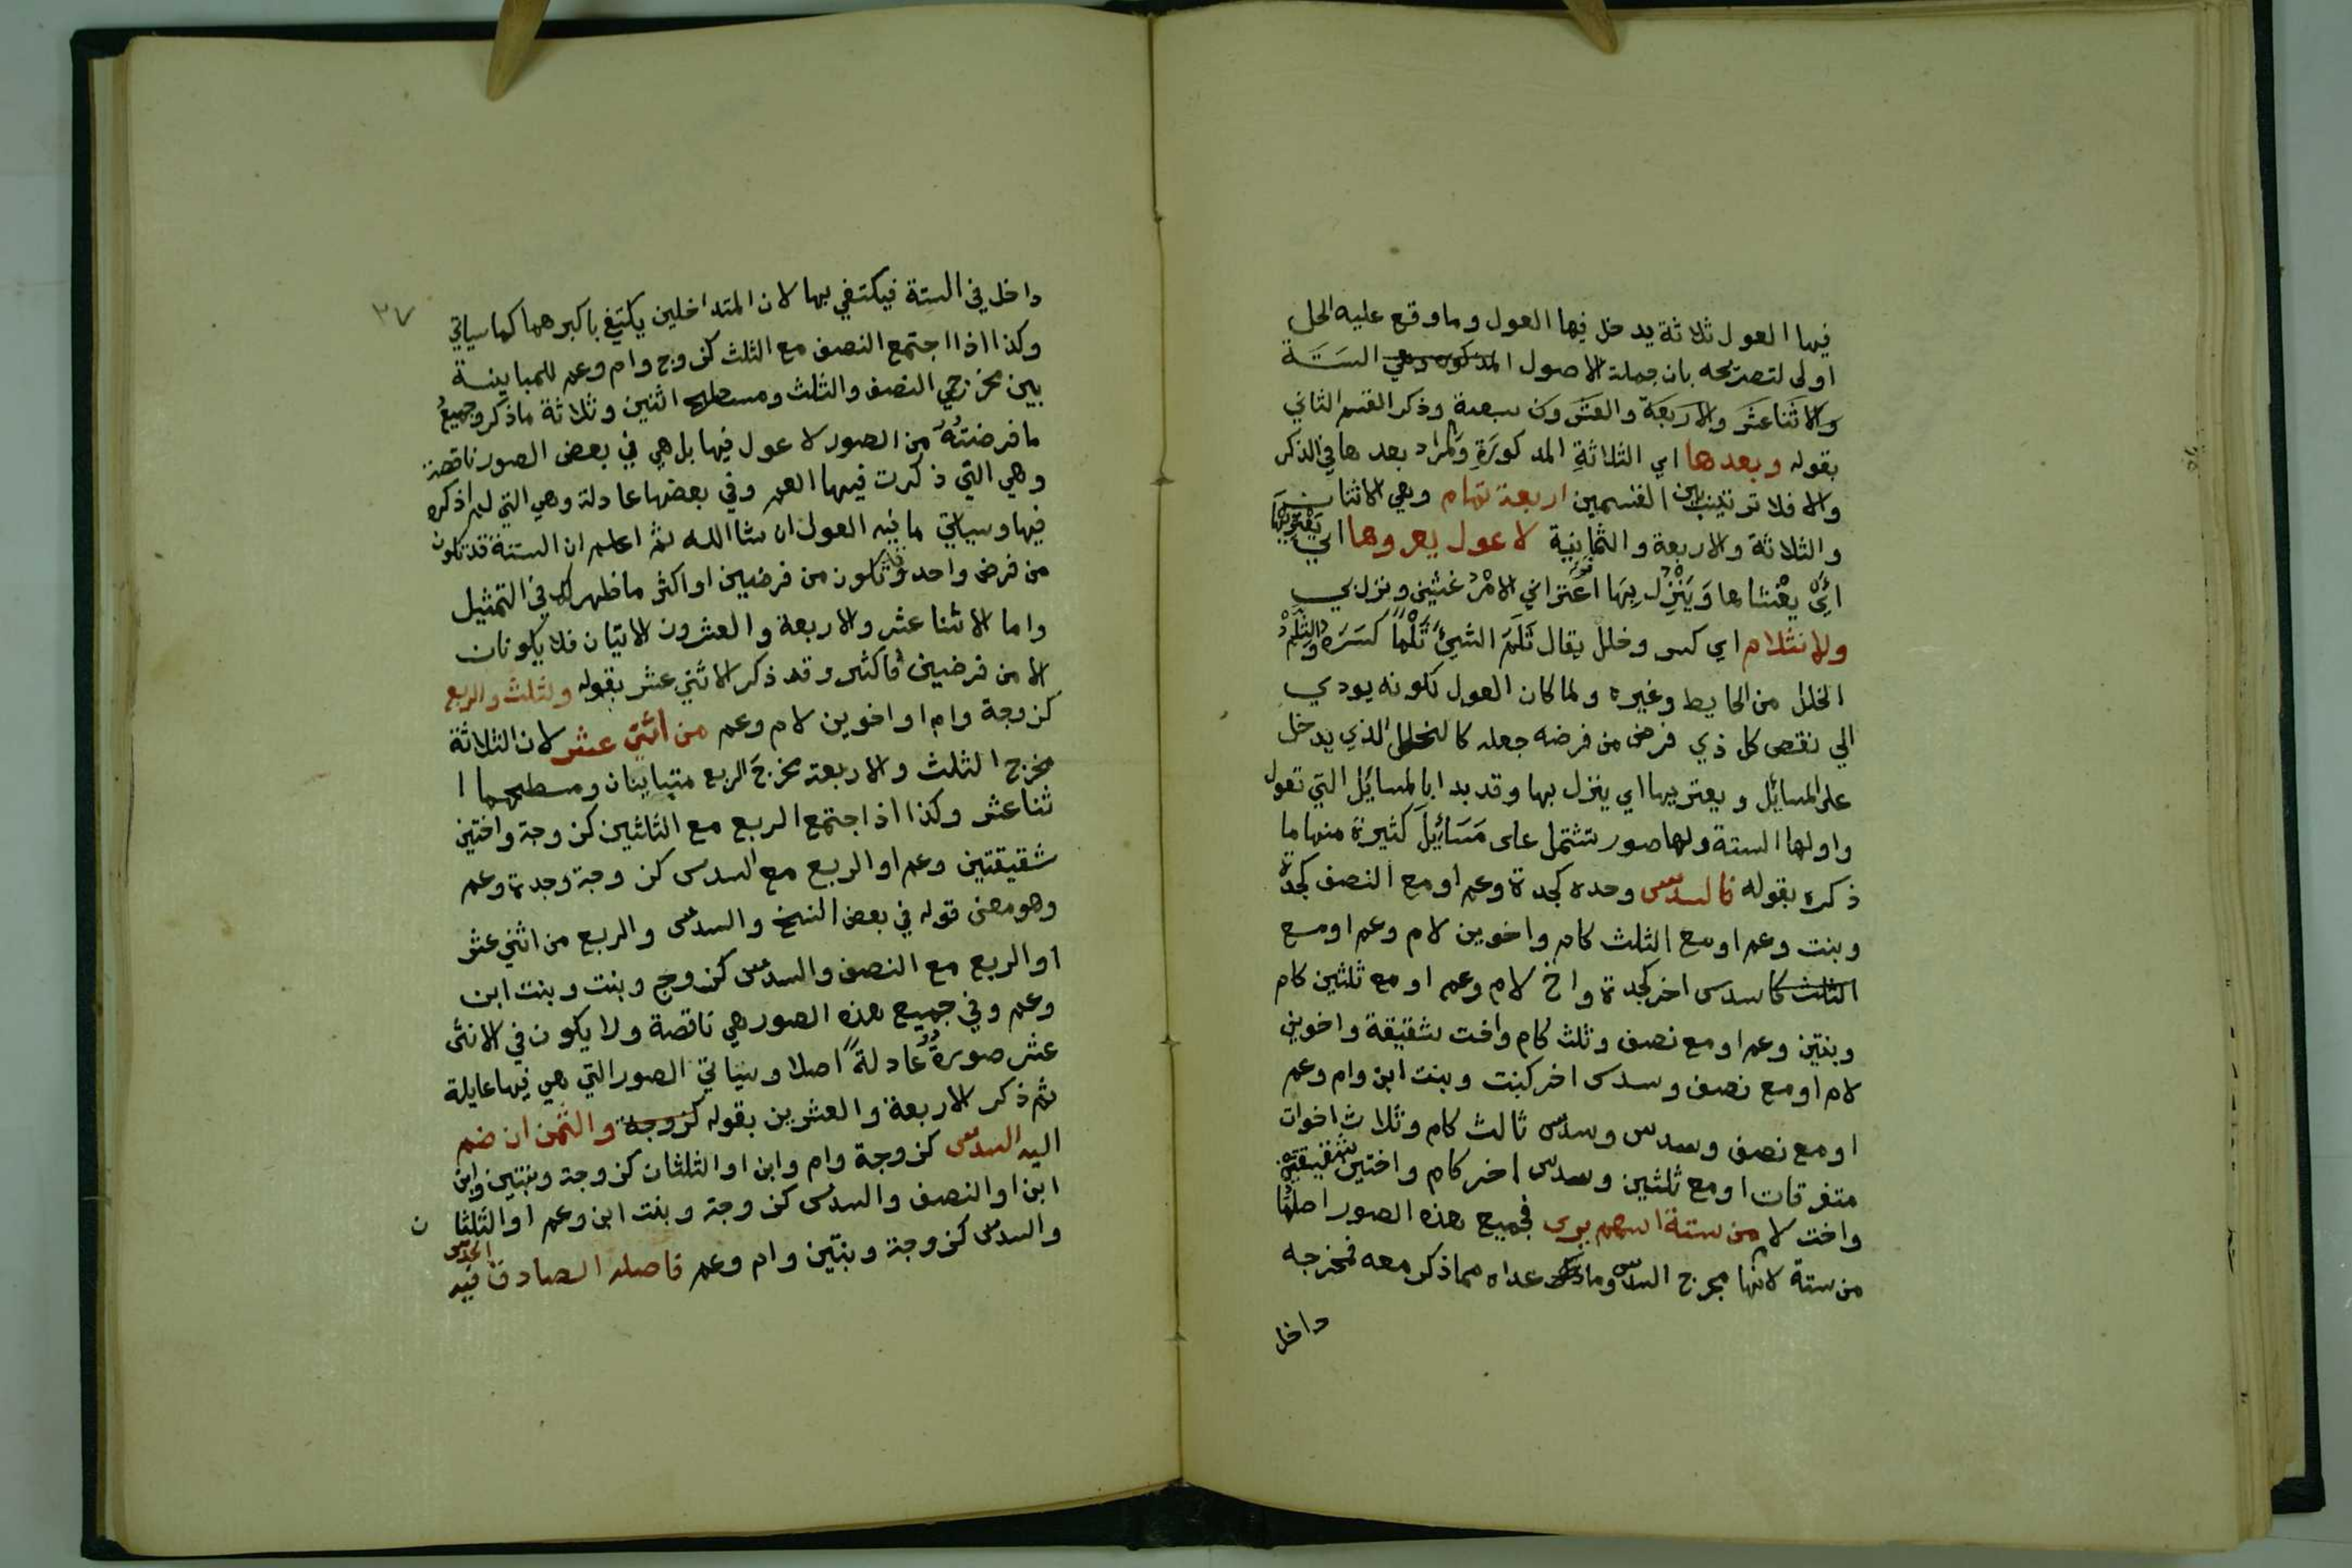 فيها العول ثلاثة يدخل فيها العول وما وقع عليه الحل
اولى لتصريحه بان جملة الاصول المذكوره وهي الستة
والاثنا عشر والاربعة والعشرون سبعة وذكر القسم الثاني
بقوله وبعدها اي الثلاثة المذكورة والمراد بعدها في الذكر
والا فلا ترتيب بين القسمين اربعة تمام وهي الاثنان
والثلاثة والاربعة والثمانية لا عول يعروها اي يعتريها
اي يغشاها وينزل بها اعتراني الامر غشيني ونزل بي
ولا انثلام اي كسر وخلل يقال ثلم الشيئ ثلما كسره والثلم
الخلل من الحايط وغيره ولما كان العول لكونه يودي
الي نقص كل ذي فرض من فرضه جعله كالخلل الذي يدخل
على المسائل ويعتريها اي ينزل بها وقد بدا بالمسايل التي تعول
واولها الستة ولها صور تشتمل على مسايل كثيرة منها ما
ذكره بقوله فالسدس وحده كجدة وعم او مع النصف كجدة
وبنت وعم او مع الثلث كام واخوين لام وعم او مع
الثلث كا سدس اخر كجدة واخ لام وعم او مع ثلثين كام
وبنتين وعم او مع نصف وثلث كام واخت شقيقة واخوين
لام او مع نصف وسدس اخر كبنت وبنت ابن وام وعم
او مع نصف وسدس وسدس ثالث كام وثلاث اخوات
متفرقات او مع ثلثين وسدس اخر كام واختين شقيقتين
واخت لام من ستة اسهم يرى فجميع هذه الصور اصلها
من ستة لانها مخرج السدس وما عداه مما ذكر معه فمخرجه
داخل
٣٧
داخل في الستة فيكتفي بها لان المتداخلين يكتفي باكبرهما كما سياتي
وكذا اذا اجتمع النصف مع الثلث كزوج وام وعم للمباينة
بين مخرجي النصف والثلث ومسطح اثنين وثلاثة ما ذكر وجميع
ما فرضته من الصور لا عول فيها بل هي في بعض الصور ناقصة
وهي التي ذكرت فيها العم وفي بعضها عادلة وهي التي لم اذكره
فيها وسياتي ما فيه العول ان شا الله ثم اعلم ان الستة قد تكون
من فرض واحد وتكون من فرضين او اكثر ما ظهر لك في التمثيل
واما الاثنا عشر والاربعة والعشرون الاتيان فلا يكونان
الا من فرضين فاكثر وقد ذكر الاثني عشر بقوله ولثلث والربع
كزوجة وام او اخوين لام وعم من اثني عشر لان الثلاثة
مخرج الثلث والاربعة مخرج الربع متباينان ومسطحهما ا
ثنا عشر وكذا اذا اجتمع الربع مع الثلثين كزوجة واختين
شقيقتين وعم او الربع مع السدس كزوجة وجدة وعم
وهو معنى قوله في بعض النسخ والسدس والربع من اثني عشر
او الربع مع النصف والسدس كزوج وبنت وبنت ابن
وعم وفي جميع هذه الصور هي ناقصة ولا يكون في الاثنى
عشر صورة عادلة اصلا وسياتي الصور التي هي فيها عايلة
ثم ذكر الاربعة والعشرين بقوله كزوجة والثمن ان ضم
اليه السدس كزوجة وام وابن او الثلثان كزوجة وبنتين وابن
ابن او النصف والسدس كزوجة وبنت ابن وعم او الثلثا ن
والسدس كزوجة وبنتين وام وعم فاصله الصادق فيه الحدس